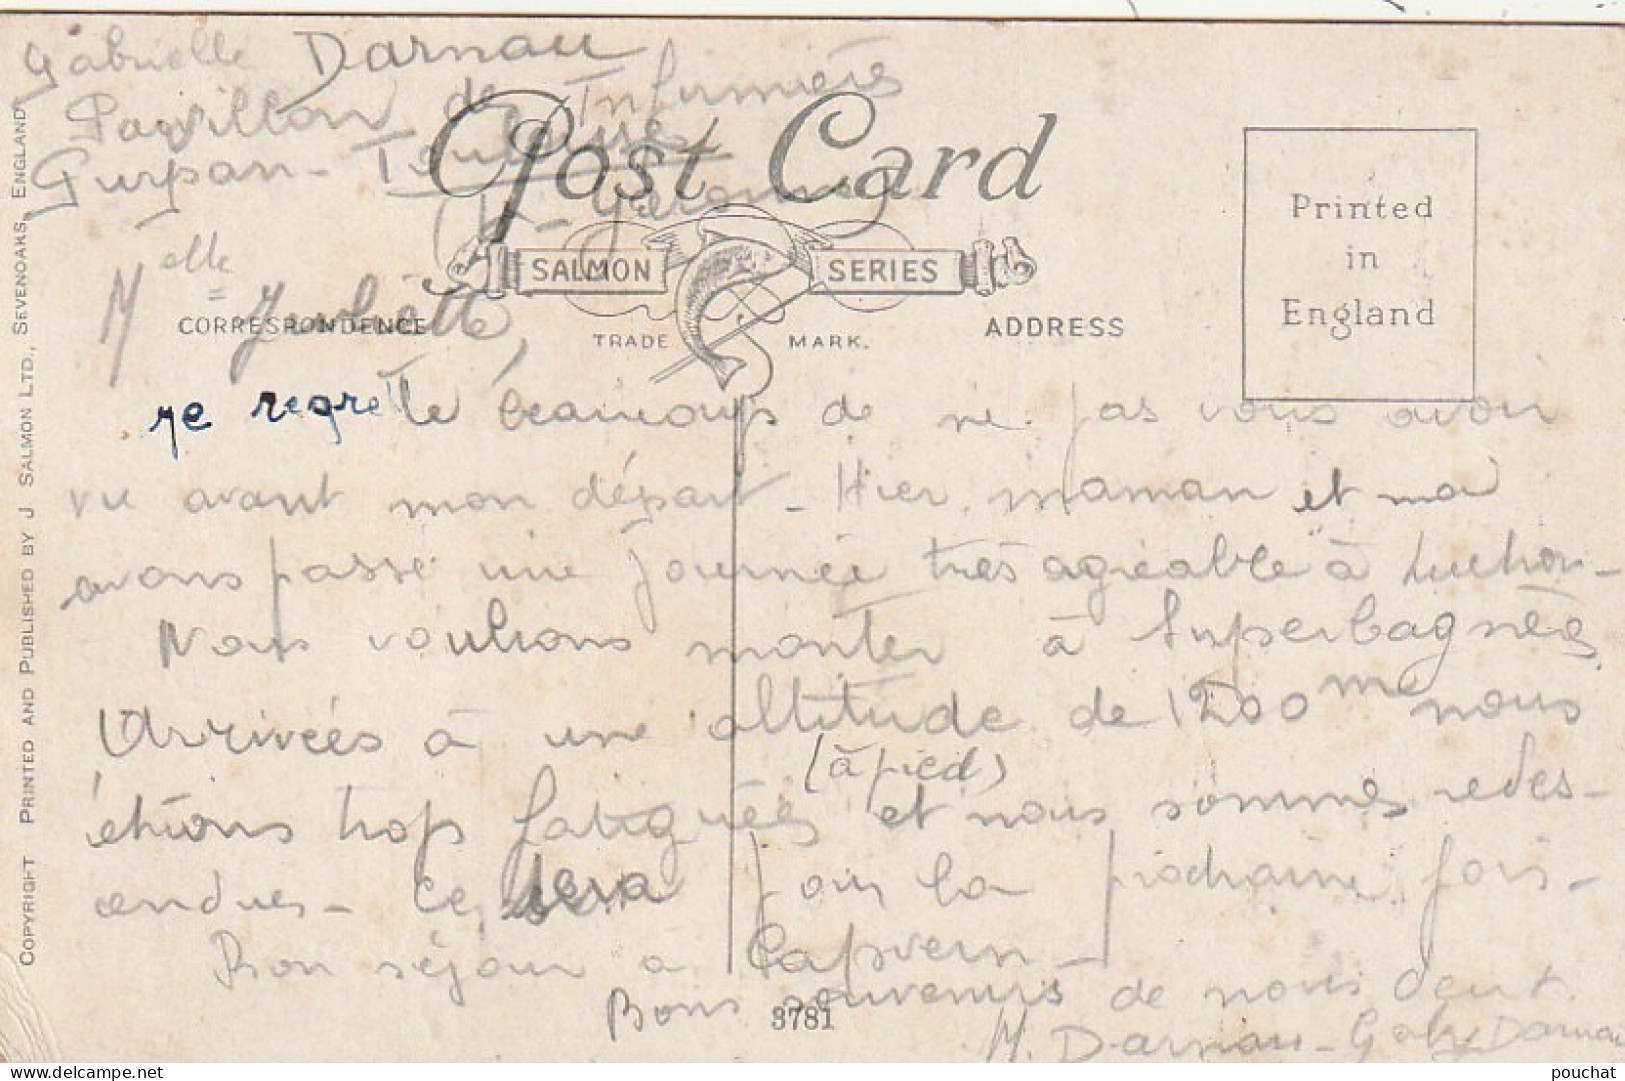 Gabrielle Darnau
Pavillon des Infirmières
Purpan - Toulouse
(Hte-Garonne)
Post Card
SALMON SERIES
TRADE MARK.
CORRESPONDENCE
ADDRESS
Printed
in
England
Melle Juliette,
je regrette beaucoup de ne pas vous avoir
vu avant mon départ - Hier, maman et moi
avons passé une journée très agréable à Luchon -
Nous voulions monter à Superbagnères
Arrivées à une altitude de 1200m nous
(à pied)
étions trop fatiguées et nous sommes redes-
cendues - Ce sera pour la prochaine fois -
Bon séjour à Capvern -
Bons souvenirs de nous deux.
M. Darnau - Gaby Darnau
3781
COPYRIGHT PRINTED AND PUBLISHED BY J SALMON LTD., SEVENOAKS, ENGLAND
pouchat